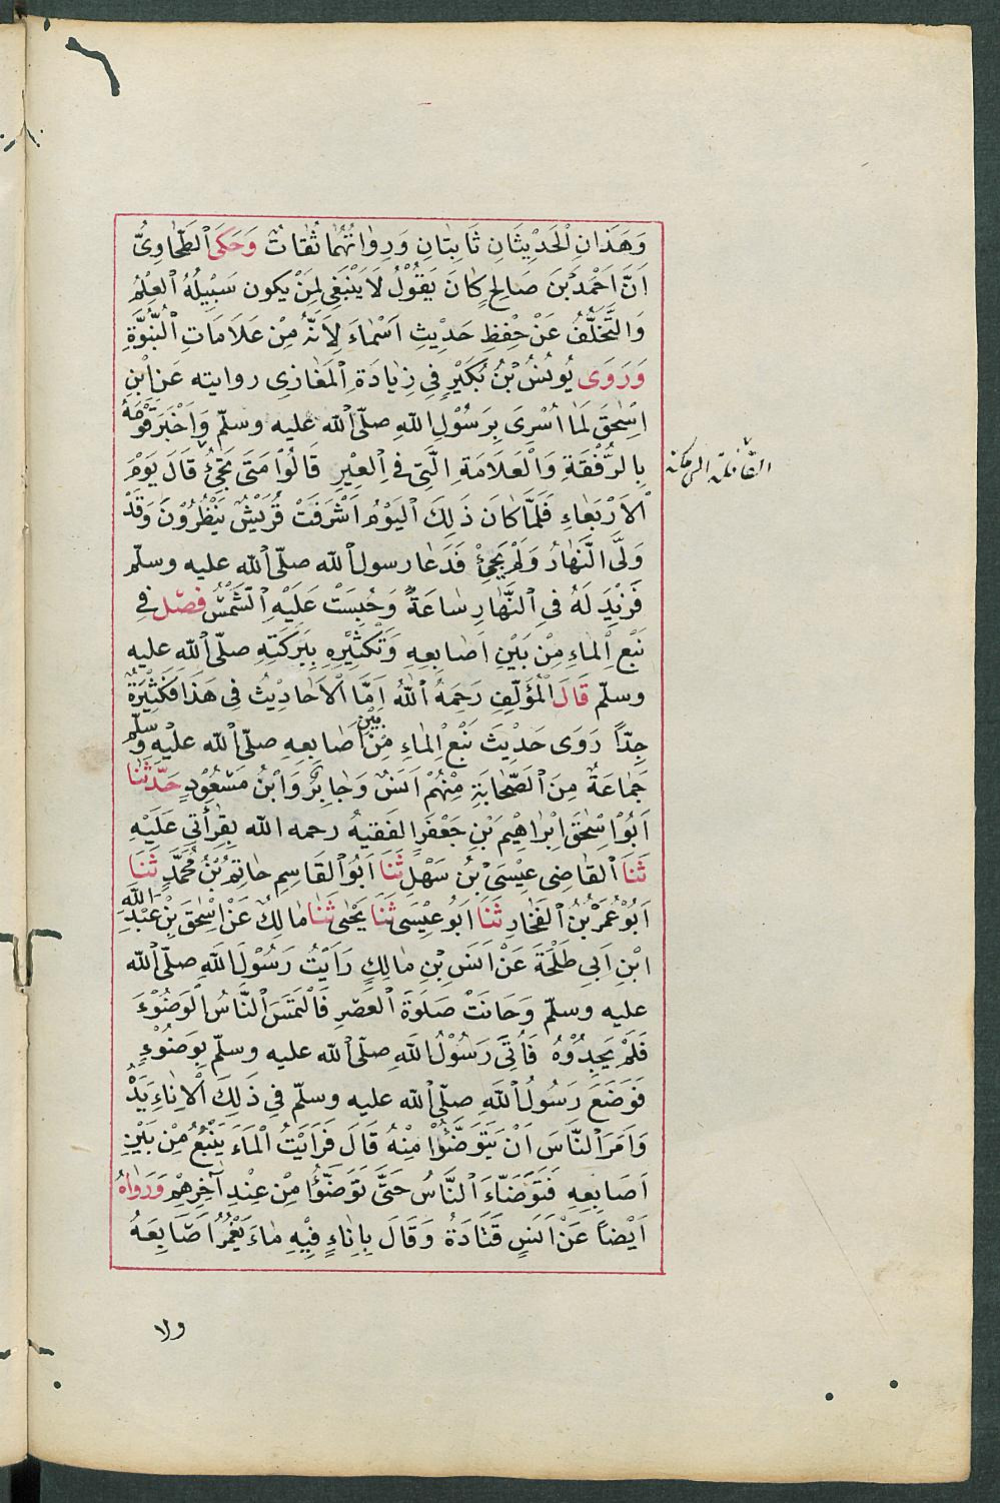 وَهَذَانِ الْحَدِيْثَانِ ثَابِتَانِ وَرِوَاتُهُمَا ثُقَاتٌ وَحَكَى الطَّحَاوِىُّ
اِنَّ اَحْمَدَ بْنَ صَالِحٍ كَانَ يَقُوْلُ لَا يَنْبَغِى لِمَنْ يكون سَبِيْلُهُ الْعِلْمُ
وَالتَّخَلُّفُ عَنْ حِفْظِ حَدِيْثِ اَسْمَاءَ لِاَنَّهُ مِنْ عَلَامَاتِ النُّبُوَّةِ
وَرَوَى يُونُسُ بْنُ بُكَيْرٍ فِى زِيَادَةِ الْمَغَازِى روايته عَنِ ابْنِ
اِسْحٰقَ لَمَا اُسْرِىَ بِرَسُوْلِ اللهِ صلّى الله عليه وسلّم وَاَخْبَرَ قَوْمَهُ
بِالرُّفْقَةِ وَالْعَلَامَةِ الَّتِى فِى الْعِيْرِ قَالُوْا مَتَى تَجِئُ قَالَ يَوْمَ
الْاَرْبَعَاءِ فَلَمَّا كَانَ ذَلِكَ الْيَوْمُ اَشْرَفَتْ قُرَيْشٌ يَنْظُرُوْنَ وَقَدْ
وَلَّى النَّهَارُ وَلَمْ يَجِئْ فَدَعَا رسول الله صلّى الله عليه وسلّم
فَزِيْدَ لَهُ فِى النَّهَارِ سَاعَةٌ وَحُبِسَتْ عَلَيْهِ الشَّمْسُ فصْل فِى
نَبْعِ الْمَاءِ مِنْ بَيْنِ اَصَابِعِهِ وَتَكْثِيْرِهِ بِبَرَكَتِهِ صلّى الله عليه
وسلّم قَالَ الْمُؤَلِّفِ رَحِمَهُ اللهُ اَمَّا الْاَحَادِيْثُ فِى هَذَا فَكَثِيْرَةٌ
جِدّاً رَوَى حَدِيْثَ نَبْعِ الْمَاءِ مِنْ بَيْنِ اَصَابِعِهِ صلّى الله عليه وسلّم
جَمَاعَةٌ مِنَ الصَّحَابَةِ مِنْهُمْ اَنَسٌ وَجَابِرٌ وَابْنُ مَسْعُوْدٍ حَدَّثَنَا
اَبُوْ اِسْحٰقَ اِبْرَاهِيْمَ بْنِ جَعْفَرَ الفَقيهُ رحمه الله بِقِرَأتِى عَلَيْهِ
ثَنَا الْقَاضِى عِيْسَى بْنُ سَهْلٍ ثَنَا اَبُو الْقَاسِمِ حَاتِمُ بْنُ مُحَمَّدٍ ثَنَا
اَبُوْ عُمَرُ بْنُ الْفَخَّارِ ثَنَا اَبُو عِيْسَى ثَنَا يَحْيٰى ثَنَا مَالِكٌ عَنْ اِسْحٰقَ بْنِ عَبْدِ الله
ابْنِ اَبِى طَلْحَةَ عَنْ اَنَسِ بْنِ مَالِكٍ رَاَيْتُ رَسُوْلَ اللهِ صلّى الله
عليه وسلّم وَحَانَتْ صَلٰوةَ الْعَصْرِ فَالْتَمَسَ النَّاسُ الْوَضُوْءَ
فَلَمْ يَجِدُوْهُ فَاُتِىَ رَسُوْلُ اللهِ صلّى الله عليه وسلّم بِوَضُوْءٍ
فَوَضَعَ رَسُولُ اللهِ صلّى الله عليه وسلّم فِى ذَلِكَ الْاِنَاءِ يَدَهُ
وَاَمَرَ النَّاسَ اَنْ يَتَوَضَّئُوْا مِنْهُ قَالَ فَرَاَيْتُ الْمَاءَ يَنْبُعُ مِنْ بَيْنِ
اَصَابِعِهِ فَتَوَضَّاءَ النَّاسُ حَتَّى تَوَضَّؤُا مِنْ عِنْدِ آخِرِهِمْ وَرَوَاهُ
اَيْضاً عَنْ اَنَسٍ قَتَادَةُ وَقَالَ بِاِنَاءٍ فِيْهِ مَاءَ يَغْمُرُ اَصَابِعَهُ
ولا